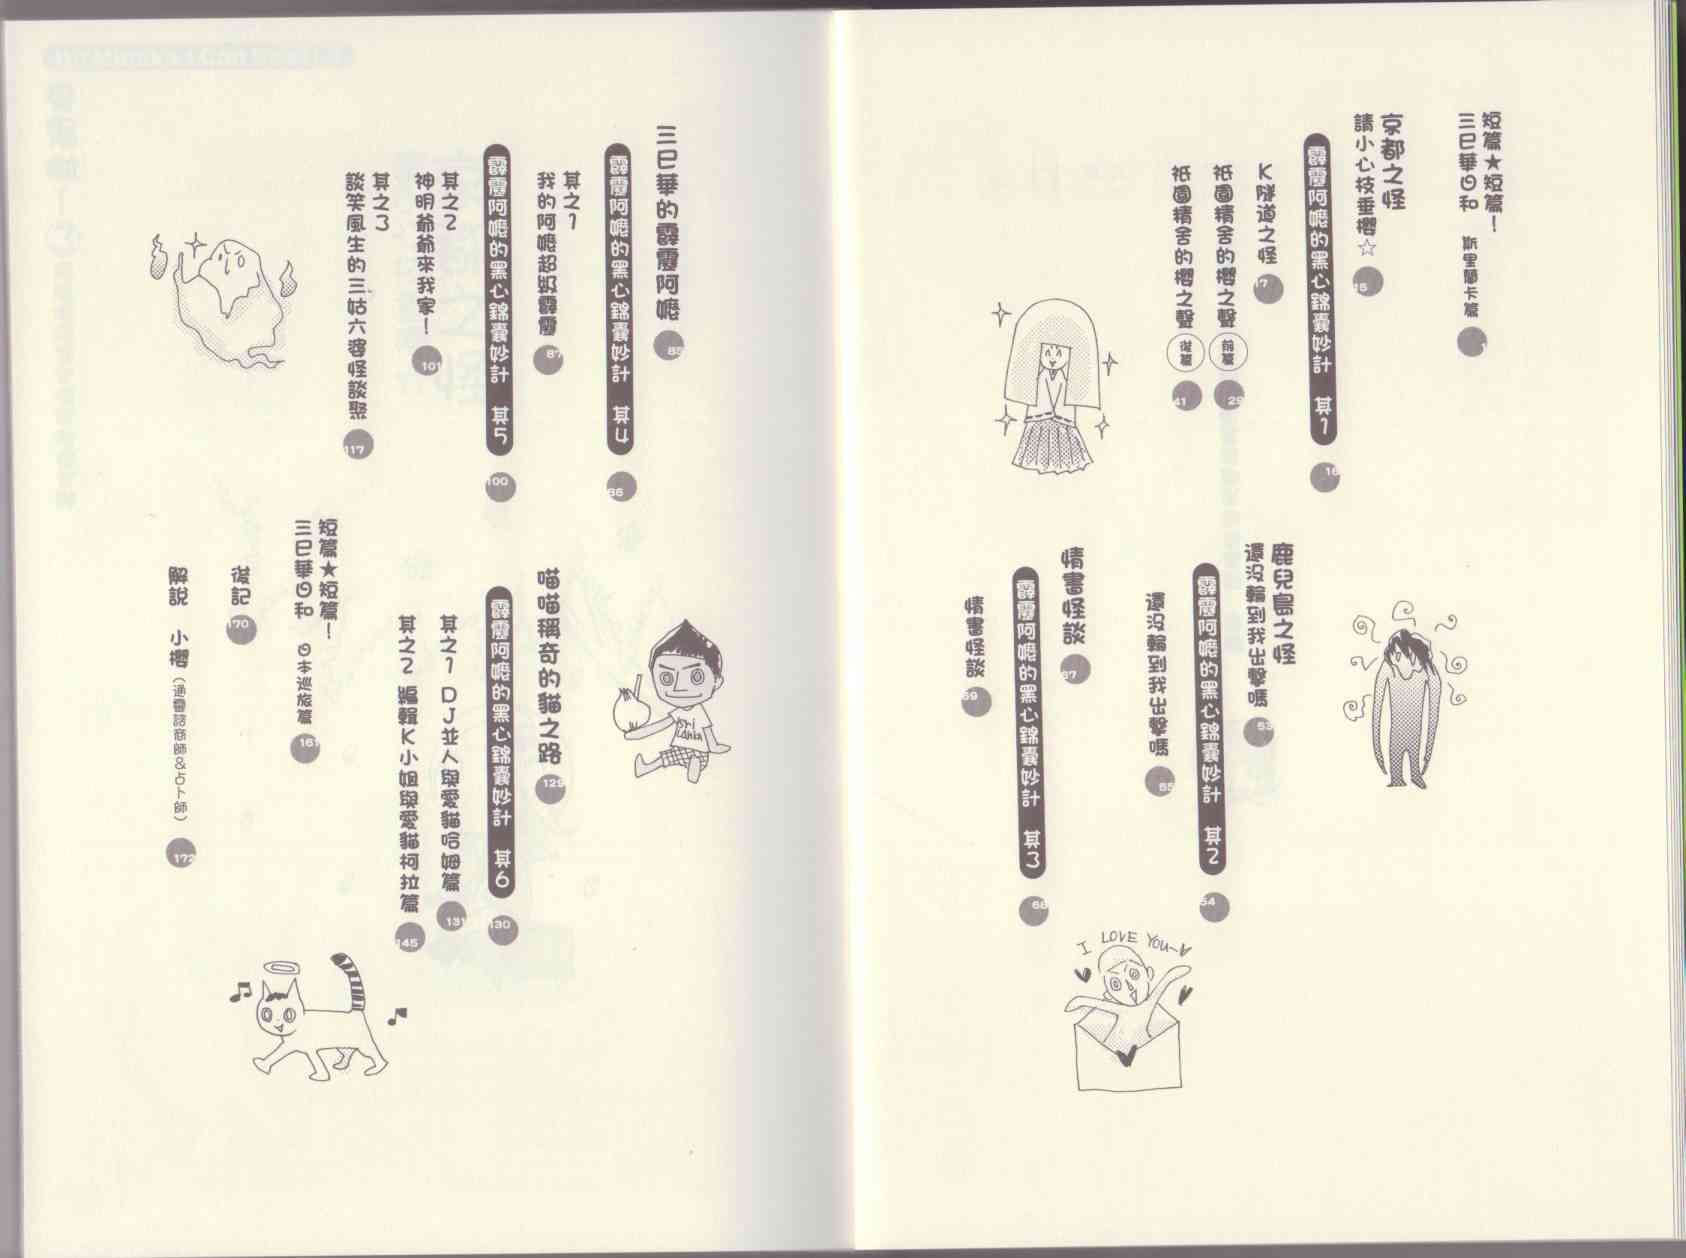 短篇★短篇！
三巳華日和 斯里蘭卡篇 1
京都之怪
請小心枝垂櫻☆ 15
霹靂阿嬤的黑心錦囊妙計 其1 16
K隧道之怪 17
祇園精舍的櫻之聲 前篇 29
祇園精舍的櫻之聲 後篇 41
鹿兒島之怪
還沒輪到我出擊嗎 53
霹靂阿嬤的黑心錦囊妙計 其2 54
還沒輪到我出擊嗎 55
情書怪談 67
霹靂阿嬤的黑心錦囊妙計 其3 68
情書怪談 69
I LOVE YOU~
三巳華的霹靂阿嬤 85
霹靂阿嬤的黑心錦囊妙計 其4 86
其之1
我的阿嬤超級霹靂 87
霹靂阿嬤的黑心錦囊妙計 其5 100
其之2
神明爺爺來我家！ 101
其之3
談笑風生的三姑六婆怪談聚 117
Sri
Lanka
喵喵稱奇的貓之路 129
霹靂阿嬤的黑心錦囊妙計 其6 130
其之1 DJ並人與愛貓哈姆篇 131
其之2 編輯K小姐與愛貓柯拉篇 145
短篇★短篇！
三巳華日和 日本巡旅篇 161
後記 170
解說 小櫻（通靈諮商師&占卜師） 172